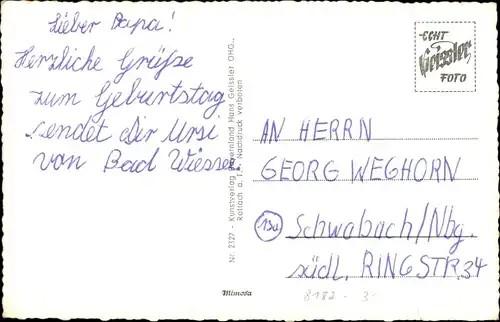 Lieber Papa!
Herzliche Grüße
zum Geburtstag
sendet dir Ursi
von Bad Wiessee.
Nr. 2327 - Kunstverlag Hans Geissler OHG.,
Rottach a. Nachdruck verboten
ECHT
Geissler
FOTO
AN HERRN
GEORG WEGHORN
13a Schwabach/Nbg.
südl. RINGSTR. 34
Mimosa
8182 - 3